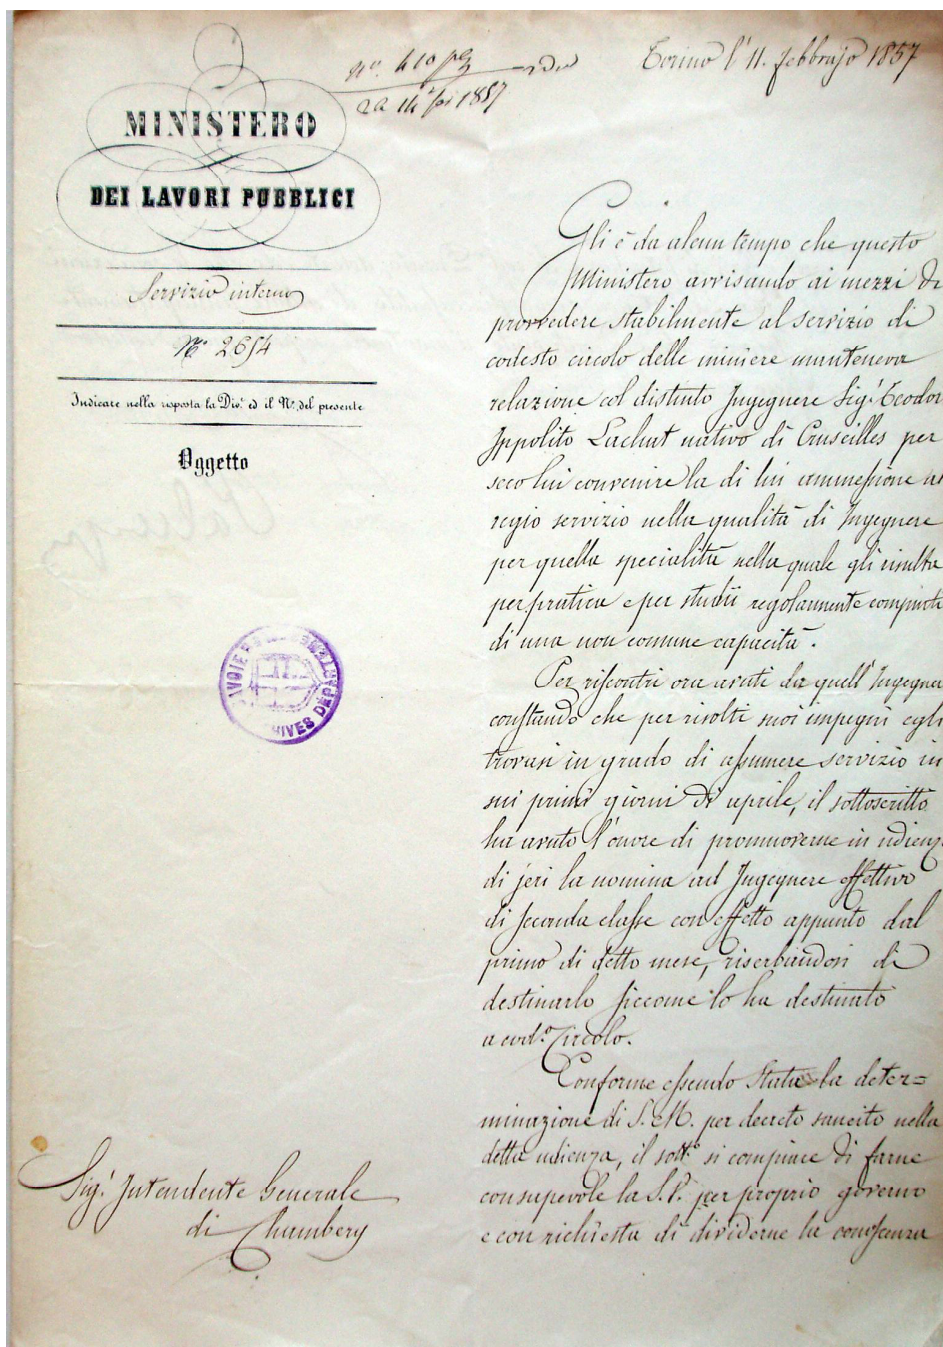 Torino l' 11. febbrajo 1857
MINISTERO
DEI LAVORI PUBBLICI
Servizio interno
N.° 2654
Indicare nella risposta la Div.e ed il N.° del presente
Oggetto
Gli è da alcun tempo che questo
Ministero avvisando ai mezzi di
provvedere stabilmente al servizio di
codesto circolo delle miniere manteneva
relazione col distinto Ingegnere Sig.r Teodor
Ippolito Lachat nativo di Cruseilles per
seco lui convenire la di lui ammessione al
regio servizio nella qualità di Ingegnere
per quella specialità nella quale gli risulta
per pratica e per studii regolarmente compiuti
di una non comune capacità.
Per riscontri ora avuti da quell' Ingegnere
constando che per risolti suoi impegni egli
trovasi in grado di assumere servizio in
sui primi giorni di aprile, il sottoscritto
ha avuto l'onore di promuoverne in udienza
di jeri la nomina ad Ingegnere effettivo
di seconda classe con effetto appunto dal
primo di detto mese, riserbandosi di
destinarlo siccome lo ha destinato
a cod.° Circolo.
Conforme essendo stata la deter=
minazione di S. M. per decreto sancito nella
detta udienza, il sott.° si compiace di farne
consapevole la S. V. per proprio governo
e con richiesta di dividerne la conoscenza
Sig.r Intendente Generale
di Chambery